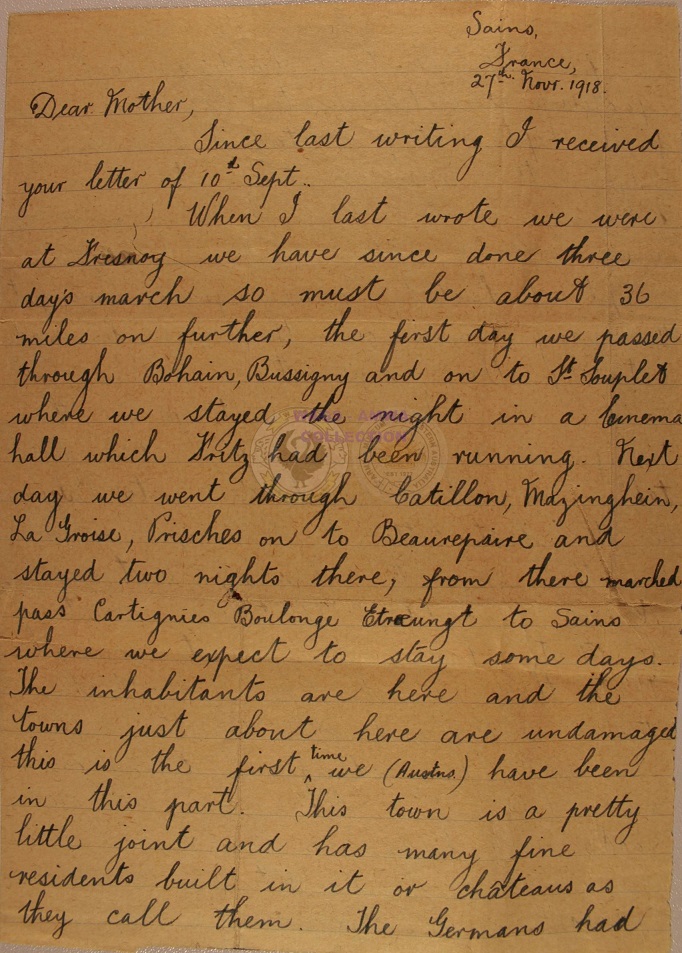 Sains,
France,
27th Novr. 1918.
Dear Mother,
Since last writing I received
your letter of 10th Sept.
When I last wrote we were
at Fresnoy we have since done three
day's march so must be about 36
miles on further, the first day we passed
through Bohain, Bussigny and on to St Souplet
where we stayed the night in a Cinema
hall which Fritz had been running. Next
day we went through Catillon, Mazinghein,
La Groise, Prisches on to Beaurepaire and
stayed two nights there, from there marched
pass Cartignies Boulonge Etroeungt to Sains
where we expect to stay some days.
The inhabitants are here and the
towns just about here are undamaged
this is the first time we (Austns.) have been
in this part. This town is a pretty
little joint and has many fine
residents built in it or chateaus as
they call them. The Germans had